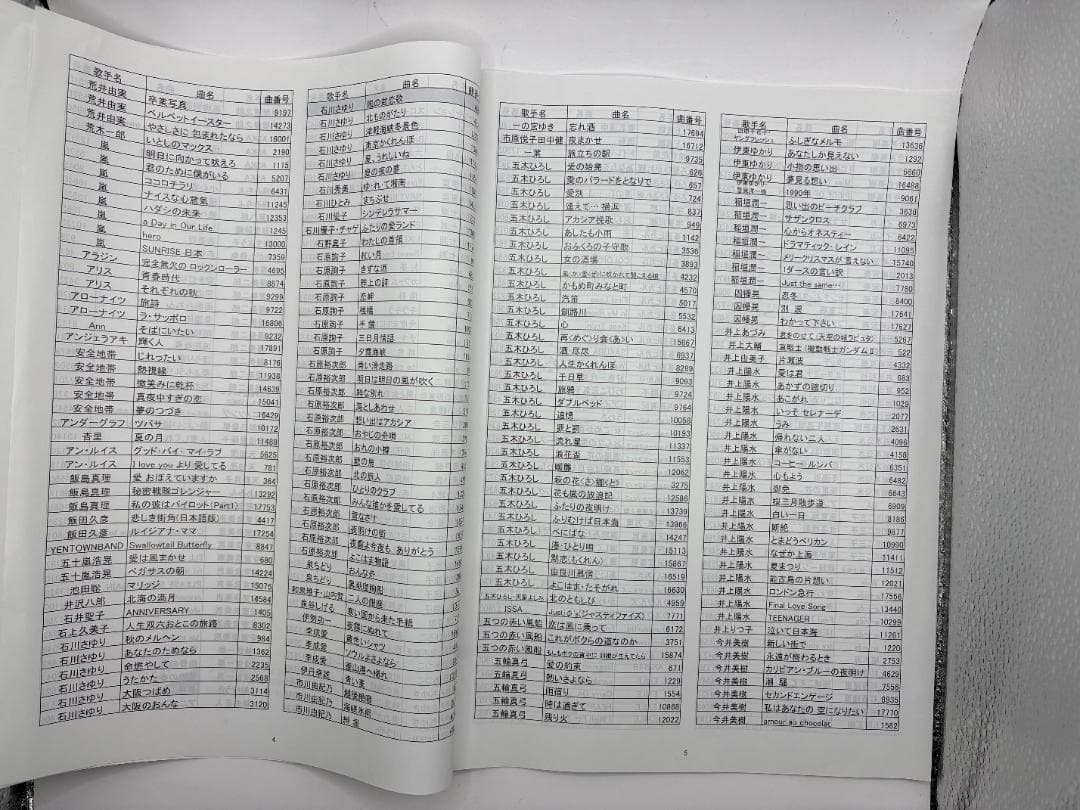 歌手名 曲名 曲番号
荒井由実 卒業写真 9197
荒井由実 ベルベットイースター 14273
荒井由実 やさしさに 包まれたなら 16001
荒木一郎 いとしのマックス 2190
嵐 明日に向かって吠えろ 1175
嵐 君のために僕がいる 5207
嵐 ココロチラリ 6431
嵐 ナイスな心意気 11245
嵐 ハダシの未来 12353
嵐 a Day in Our Life 1245
嵐 hero 13000
嵐 SUNRISE 日本 7359
アラジン 完全無欠の ロックンローラー 4695
アリス 青春時代 8874
アリス それぞれの秋 9299
アローナイツ 旅詩 9722
アローナイツ ラ・サッポロ 16806
Ann そばにいたい 9232
アンジェラアキ 輝く人 17691
安全地帯 じれったい 8176
安全地帯 熱視線 11938
安全地帯 微笑みに乾杯 14839
安全地帯 真夜中すぎの恋 15041
安全地帯 夢のつづき 16429
アンダーグラフ ツバサ 10172
杏里 夏の月 11488
アン・ルイス グッド・バイ・マイ・ラブ 5625
アン・ルイス I love you より 愛してる 781
飯島真理 愛 おぼえていますか 364
飯島真理 秘密戦隊ゴレンジャー 13292
飯島真理 私の彼はパイロット(Part1) 17753
飯田久彦 悲しき街角(日本語版) 4417
飯田久彦 ルイジアナ・ママ 17254
YENTOWNBAND Swallowtail Butterfly 8847
五十嵐浩晃 愛は風まかせ 680
五十嵐浩晃 ペガサスの朝 14224
池田聡 マリッジ 15075
井沢八郎 北海の満月 14584
石井聖子 ANNIVERSARY 1405
石上久美子 人生双六おとこの旅路 8302
石川さゆり 秋のメルヘン 984
石川さゆり あなたのためなら 1362
石川さゆり 命燃やして 2235
石川さゆり うたかた 2568
石川さゆり 大阪つばめ 3114
石川さゆり 大阪のおんな 3120
4
歌手名 曲名
石川さゆり
石川さゆり 北ものがたり
石川さゆり 津軽海峡冬景色
石川さゆり 東京かくれんぼ
石川さゆり 夏、うれしいね
石川さゆり 夏の夜の夢
石川秀美 ゆ・れ・て湘南
石川ひとみ まちぶせ
石川優子 シンデレラサマー
石川優子・チャゲ ふたりの愛ランド
石野真子 わたしの首領
石原詢子
石原詢子 きずな道
石原詢子
石原詢子 恋岬
石原詢子
石原詢子
石原詢子 三日月情話
石原詢子 夕霧海峡
石原裕次郎 青い満走路
石原裕次郎 明日は明日の風が吹く
石原裕次郎 粋な別れ
石原裕次郎
石原裕次郎 想い出はアカシア
石原裕次郎 おやじの舟唄
石原裕次郎 お九の小樽
石原裕次郎
石原裕次郎 北の旅人
石原裕次郎 ひとりのクラブ
石原裕次郎 みんな誰かを愛してる
石原裕次郎 雪なさけ
石原裕次郎 夜明けの街
石原裕次郎 夜霧よ今夜も ありがとう
石原裕次郎 よこはま物語
泉ちどり おんな舟
泉ちどり
二人の銀座
泉谷しげる 寒い国から来た手紙
伊勢功一 夜霧にぬれて
李成愛
李成愛 ソウルよさよなら
李成愛 釜山港へ帰れ
伊丹幸雄 青い麦
市川由紀乃
市川由紀乃 海峡氷雨
市川由紀乃
歌手名 曲名 曲番号
一の宮ゆき 忘れ酒 17694
市原悦子田中健 夜まかせ 16712
一葉 旅立ちの駅 9735
五木ひろし 愛の始発 826
五木ひろし 愛のバラードをとなりで 657
五木ひろし 愛別 724
五木ひろし 逢えて…横浜 837
五木ひろし アカシア挽歌 949
五木ひろし あしたも小雨 1142
五木ひろし おふくろの子守歌 3536
五木ひろし 女の酒場 3893
五木ひろし 4232
五木ひろし かもめ町みなと町 4570
五木ひろし 汽笛 5017
五木ひろし 釧路川 5532
五木ひろし 心 6413
五木ひろし 再(めぐ)り会(あ)い 15667
五木ひろし 酒・尽尽 6937
五木ひろし 人生かくれんぼ 8269
五木ひろし 千日草 9093
五木ひろし 旅鴉 9724
五木ひろし ダブルベッド 9764
五木ひろし 追憶 10058
五木ひろし 妻と誓 10193
五木ひろし 流れ星 11337
五木ひろし 浪花盃 11553
五木ひろし 暖簾 12062
五木ひろし 萩の花(さ)揺(く) 3275
五木ひろし 花も嵐の放浪記 12586
五木ひろし ふたりの夜明け 13739
五木ひろし ふりむけば日本海 13966
五木ひろし べにばな 14247
五木ひろし 湊・ひとり唄 15113
五木ひろし 黙恋(もくれん) 15867
五木ひろし 由良川慕情 16519
五木ひろし よこはま・たそがれ 16630
五木ひろし・天童よしみ 北のともしび 4959
ISSA Justiφ's(ジャスティファイズ) 7771
五つの赤い風船 恋は風に乗って 6172
五つの赤い風船 これがボクらの道なのか 3751
五つの赤い風船 もしもボクの背中に 羽根が生えてたら 15874
五輪真弓 愛の約束 671
五輪真弓 熱いさよなら 1229
五輪真弓 雨宿り 1554
五輪真弓 時は過ぎて 10868
五輪真弓 残り火 12022
5
歌手名 曲名 曲番号
ヤングフレッシュ ふしぎなメルモ 13636
伊東ゆかり あなたしか見えない 1292
伊東ゆかり 小指の思い出 6660
伊東ゆかり 夢見る想い 16486
1990年 9061
稲垣潤一 思い出のビーチクラブ 3638
稲垣潤一 サザンクロス 6973
稲垣潤一 心からオネスティー 6422
稲垣潤一 ドラマティック・レイン 11095
稲垣潤一 メリークリスマスが 言えない 15740
稲垣潤一 1ダースの言い訳 2013
稲垣潤一 Just the same… 7780
因幡晃 忍冬 8400
因幡晃 別涙 17641
因幡晃 わかって下さい 17627
井上あづみ 君をのせて(天空の城ラピュタ) 5267
井上大輔 哀戦士(機動戦士ガンダムⅡ 522
井上由美子 片瀬波 4332
井上陽水 愛は君 883
井上陽水 あかずの踏切り 952
井上陽水 あこがれ 1029
井上陽水 いっそ セレナーデ 2077
井上陽水 うみ 2631
井上陽水 帰れない二人 4098
井上陽水 傘がない 4158
井上陽水 コーヒー ルンバ 6351
井上陽水 心もよう 6482
井上陽水 御免 6643
井上陽水 桜三月散歩道 6909
井上陽水 白い一日 8186
井上陽水 断絶 9877
井上陽水 とまどうペリカン 10990
井上陽水 なぜか上海 11411
井上陽水 夏まつり 11512
井上陽水 能古島の片想い 12021
井上陽水 ロンドン急行 17556
井上陽水 Final Love Song 13440
井上陽水 TEENAGER 10299
井上りつ子 泣いて日本海 11261
今井美樹 新しい街で 1220
今井美樹 永遠が終わるとき 2753
今井美樹 カリビアン・ブルーの夜明け 4629
今井美樹 潮騒 7556
今井美樹 セカンドエンゲージ 8935
今井美樹 私はあなたの 空になりたい 17770
今井美樹 amour au chocolat 1562